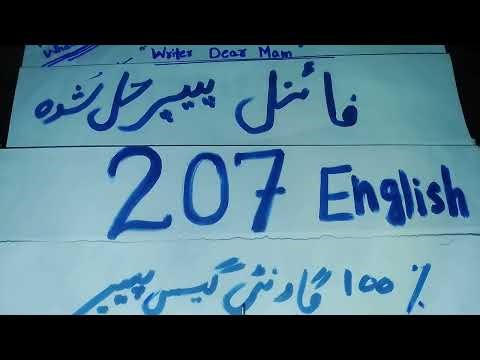 Wha
" Writer Dear Mam "
فائنل پیپر حل شدہ
207 English
100% گارنٹی گیس پیپر